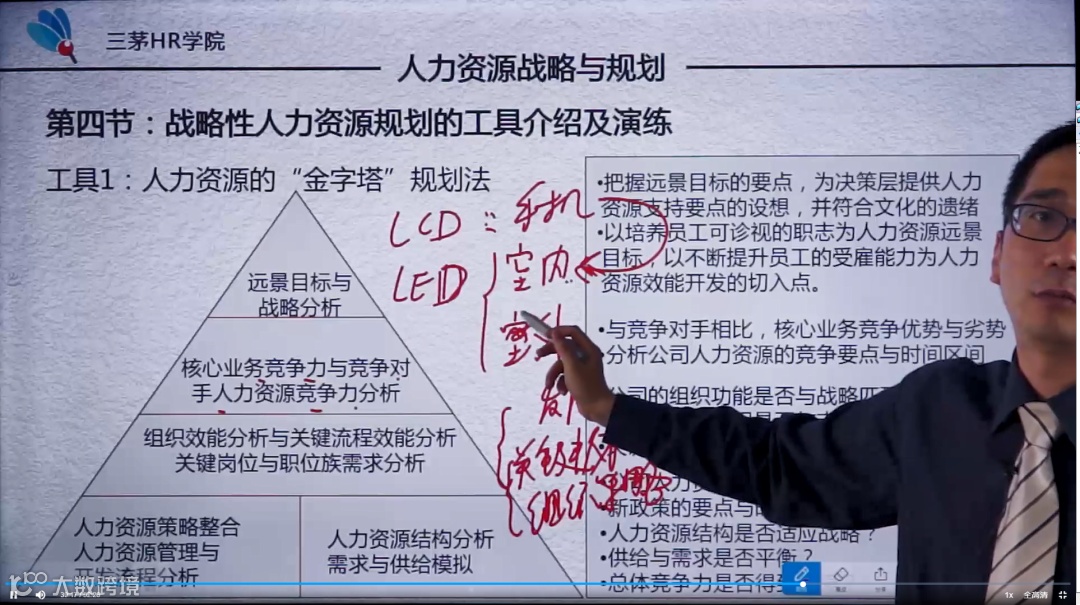 三茅HR学院
人力资源战略与规划
第四节：战略性人力资源规划的工具介绍及演练
工具1：人力资源的“金字塔”规划法
远景目标与
战略分析
核心业务竞争力与竞争对
手人力资源竞争力分析
组织效能分析与关键流程效能分析
关键岗位与职位族需求分析
人力资源策略整合
人力资源管理与
开发流程分析
人力资源结构分析
需求与供给模拟
LCD：手机
LED
室内
室外
组织
•把握远景目标的要点，为决策层提供人力
资源支持要点的设想，并符合文化的遗绪
•以培养员工可诊视的职志为人力资源远景
目标，以不断提升员工的受雇能力为人力
资源效能开发的切入点。
•与竞争对手相比，核心业务竞争优势与劣势
•分析公司人力资源的竞争要点与时间区间
公司的组织功能是否与战略匹
新政策的要点与
•人力资源结构是否适应战略？
•供给与需求是否平衡？
•总体竞争力是否得
大数跨境
1x
全高清